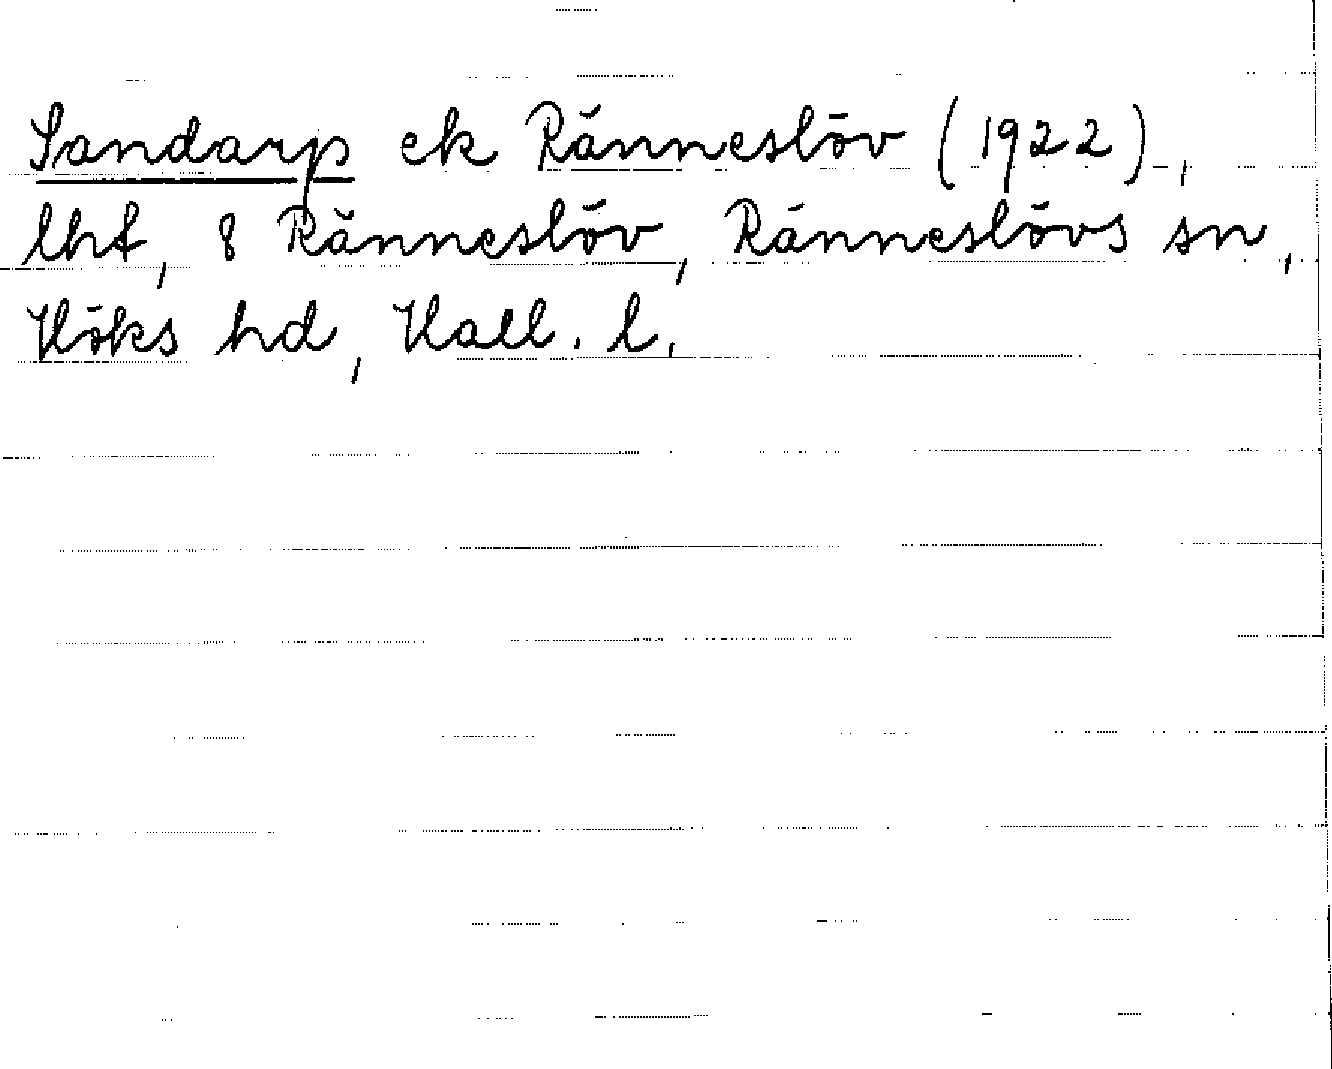 Sandarp ek Ränneslöv (1922),
lht, 8 Ränneslöv, Ränneslövs sn,
Höks hd, Hall. l.